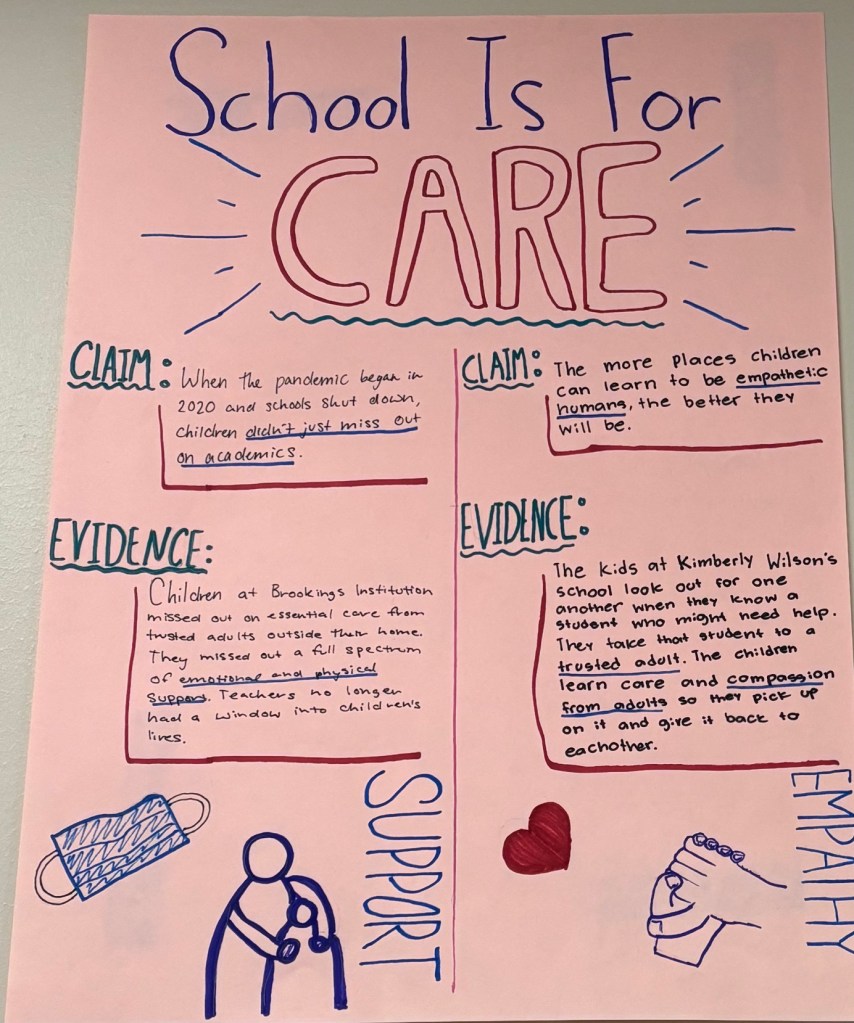 School Is For
CARE
CLAIM:
When the pandemic began in
2020 and schools shut down,
children didn't just miss out
on academics.
EVIDENCE:
Children at Brookings Institution
missed out on essential care from
trusted adults outside their home.
They missed out a full spectrum
of emotional and physical
support. Teachers no longer
had a window into children's
lives.
SUPPORT
CLAIM:
The more places children
can learn to be empathetic
humans, the better they
will be.
EVIDENCE:
The kids at Kimberly Wilson's
school look out for one
another when they know a
student who might need help.
They take that student to a
trusted adult. The children
learn care and compassion
from adults so they pick up
on it and give it back to
eachother.
EMPATHY